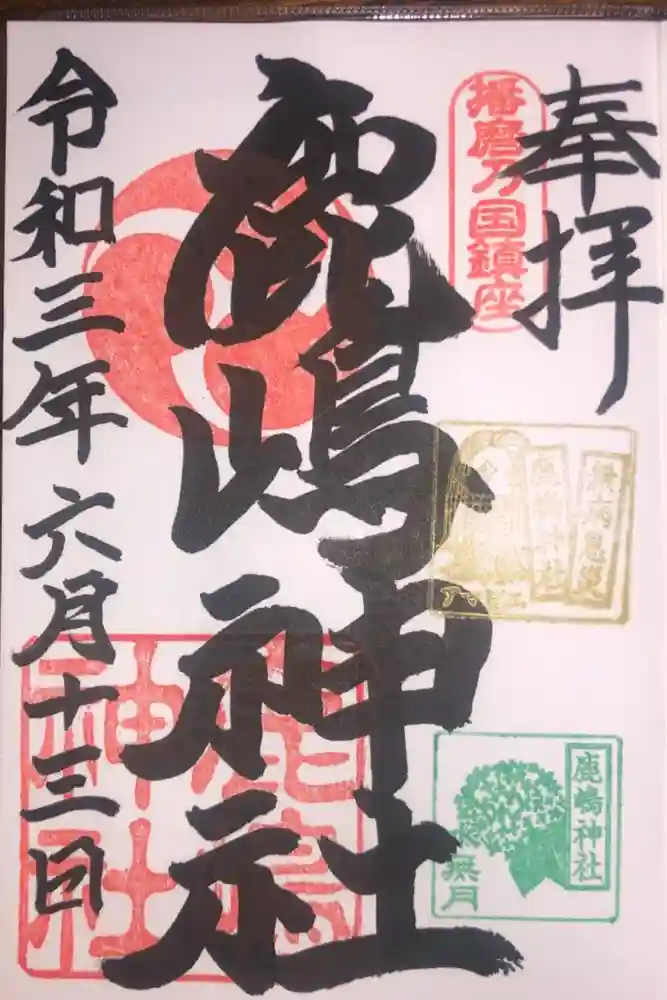 奉拝
播磨乃国鎮座
鹿嶋神社
令和三年六月十三日
鹿嶋
神社
鹿嶋神社
無病息災
鹿嶋神社
水無月